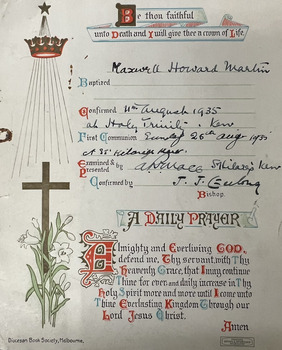 Be thou faithful
unto Death and I will give thee a crown of Life.
Maxwell Howard Martin
Baptized
Confirmed 11th August 1935
at Holy Trinity Kew
First Communion Sunday 25th Aug 1935
at
Examined &
Presented by St Hilary's Kew
Confirmed by J. J. Geelong
Bishop.
A DAILY PRAYER
Almighty and Everliving GOD,
defend me, Thy servant, with Thy
Heavenly Grace, that I may continue
Thine for ever: and daily increase in Thy
Holy Spirit more and more until I come unto
Thine Everlasting Kingdom Through our
Lord Jesus Christ.
Amen
Diocesan Book Society, Melbourne.